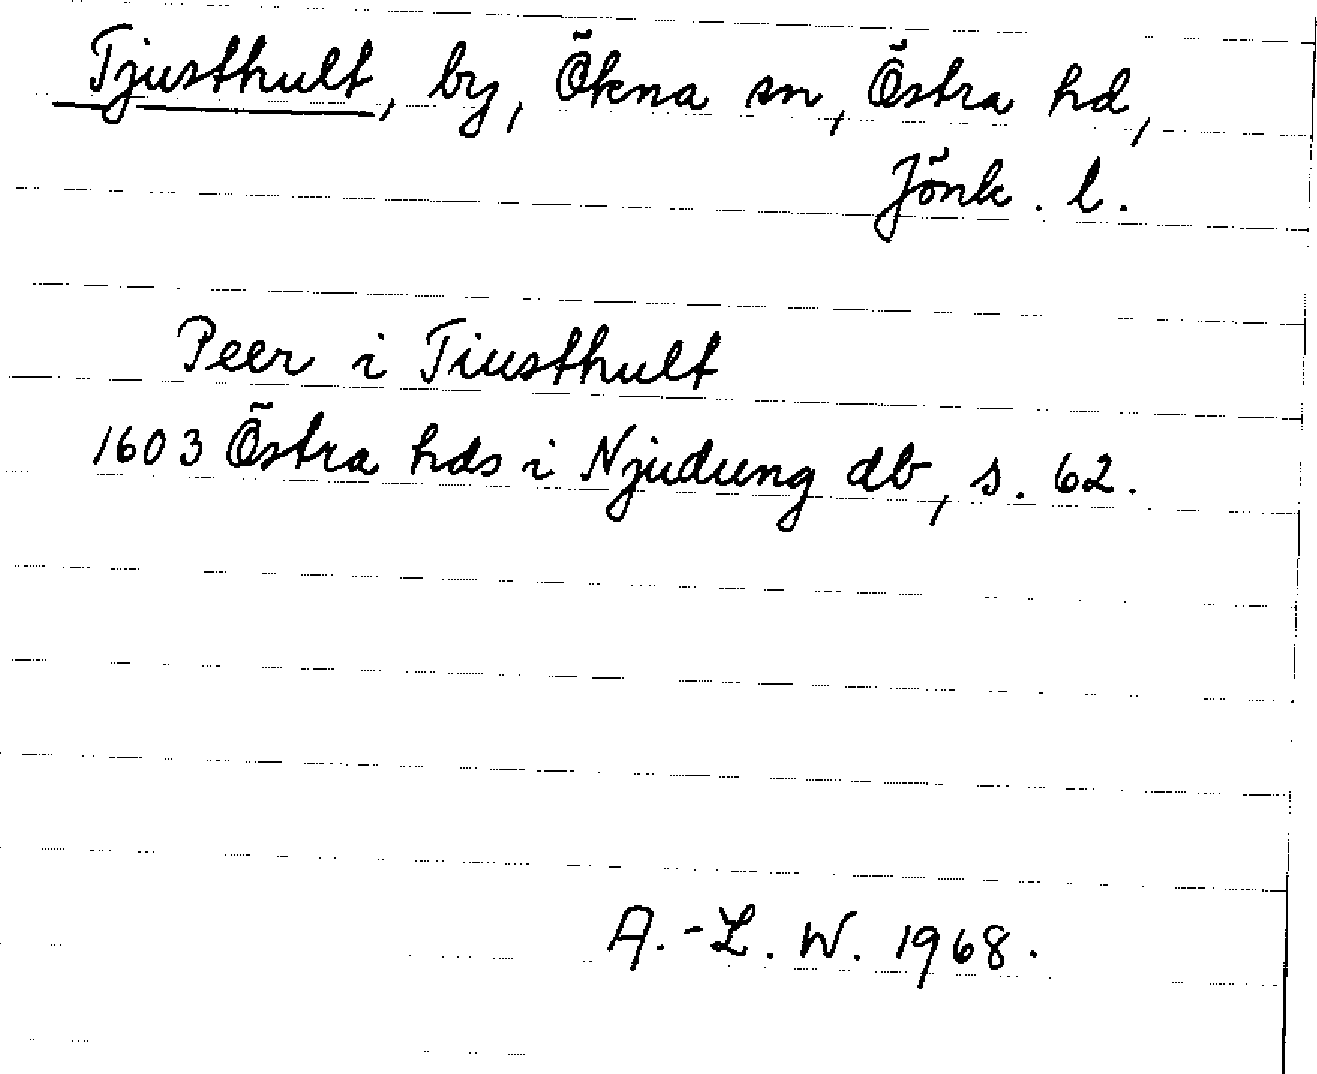 Tjusthult, by, Ökna sn, Östra hd,
Jönk. l.
Peer i Tiusthult
1603 Östra hds i Njudung db, s. 62.
A.-L. W. 1968.